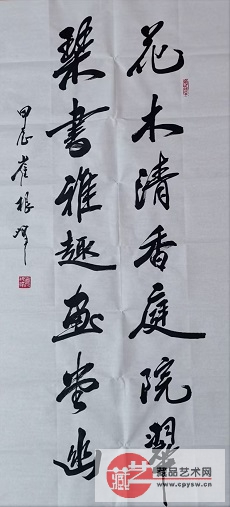 花木清香庭院翠
琴書雅趣画堂幽
甲辰 崔根成
藏艺
藏品艺术网
www.cpysw.cn